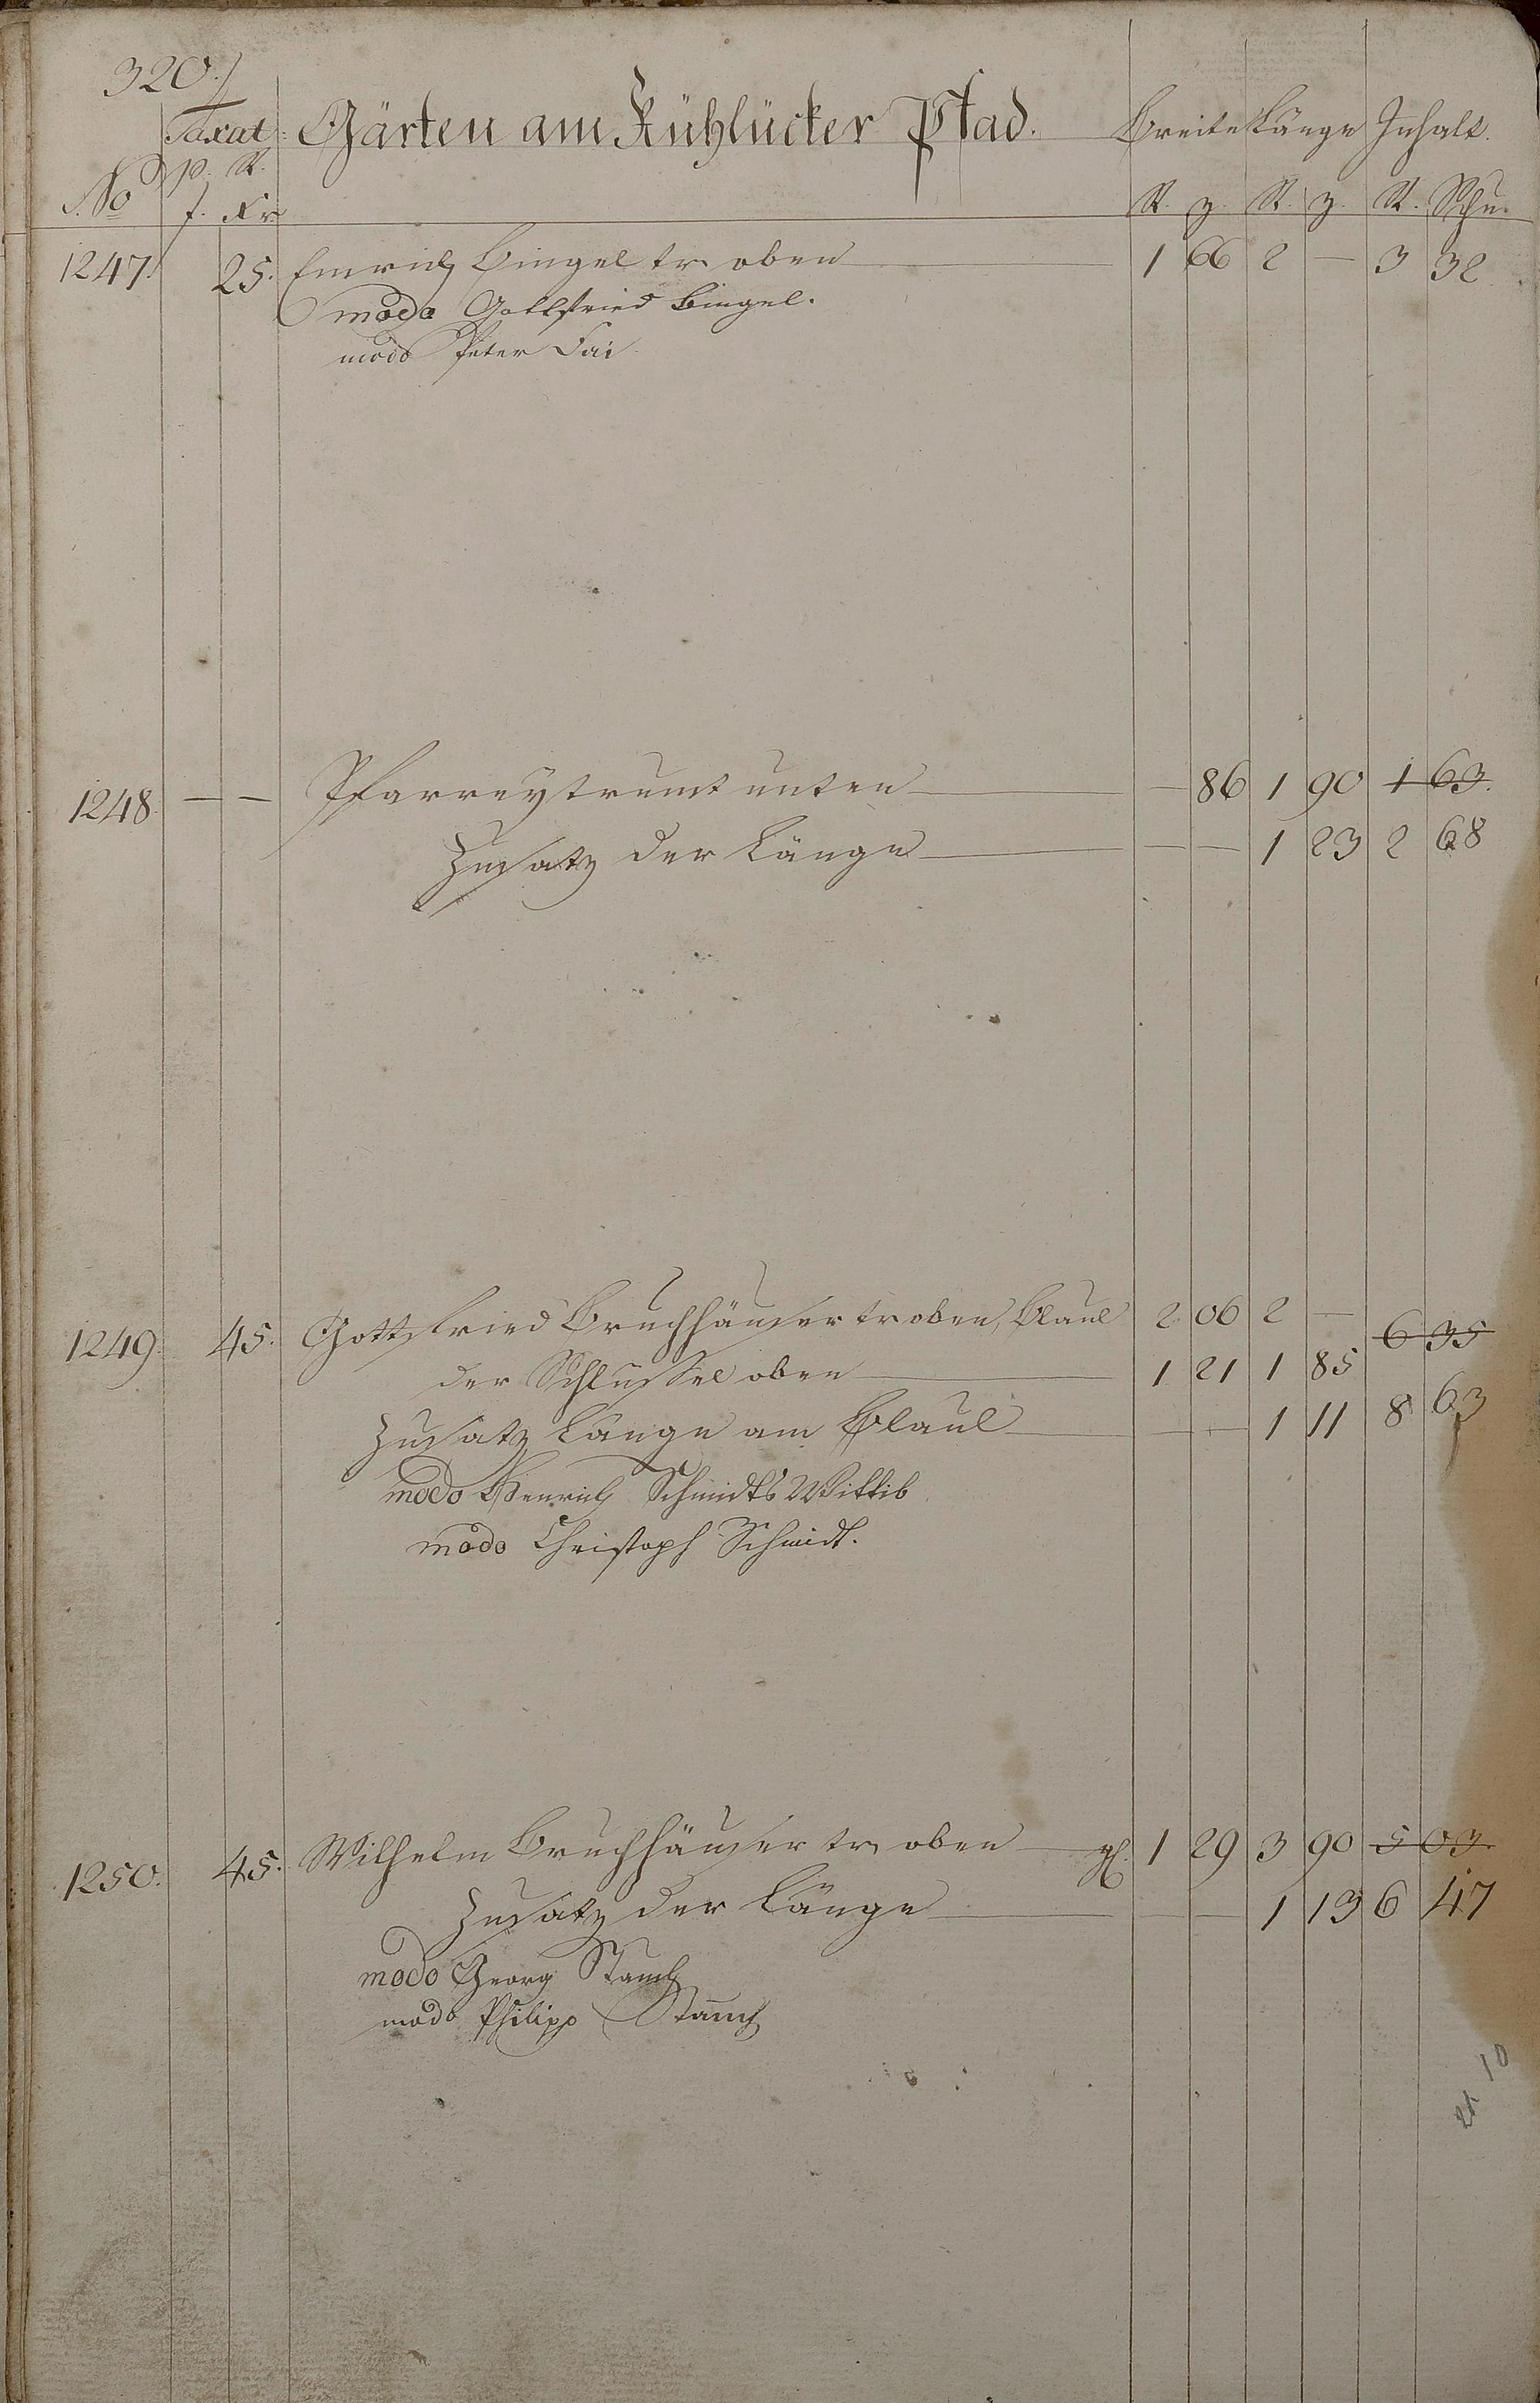 320.
Taxat: Gärten am Kühlücker Pfad. Breite Länge Inhalt.
p. R.
No f. Xr. R. z. R. z. R. Schu.
1247. 25. Emrich Bingel tr. oben 1 66 2 — 3 32
modo Gottfried Bingel.
modo Peter Fai
1248. — — Pfarreytrumt unten — 86 1 90 1 63.
Zusatz der Länge — — 1 23 2 68
1249. 45. Gottfried Bruchhäuser tr oben, Blaul 2 06 2 — 6 35
der Schlüssel oben 1 21 1 85
Zusatz Länge am Blaul — — 1 11 8 63
modo Henrich Schmidts Wittib
modo Christoph Schmidt.
1250. 45. Wilhelm Bruchhäuser tr. oben gl. 1 29 3 90 5 03.
Zusatz der Länge — — 1 13 6 47
modo Georg Stauch
modo Philipp Stauch
10